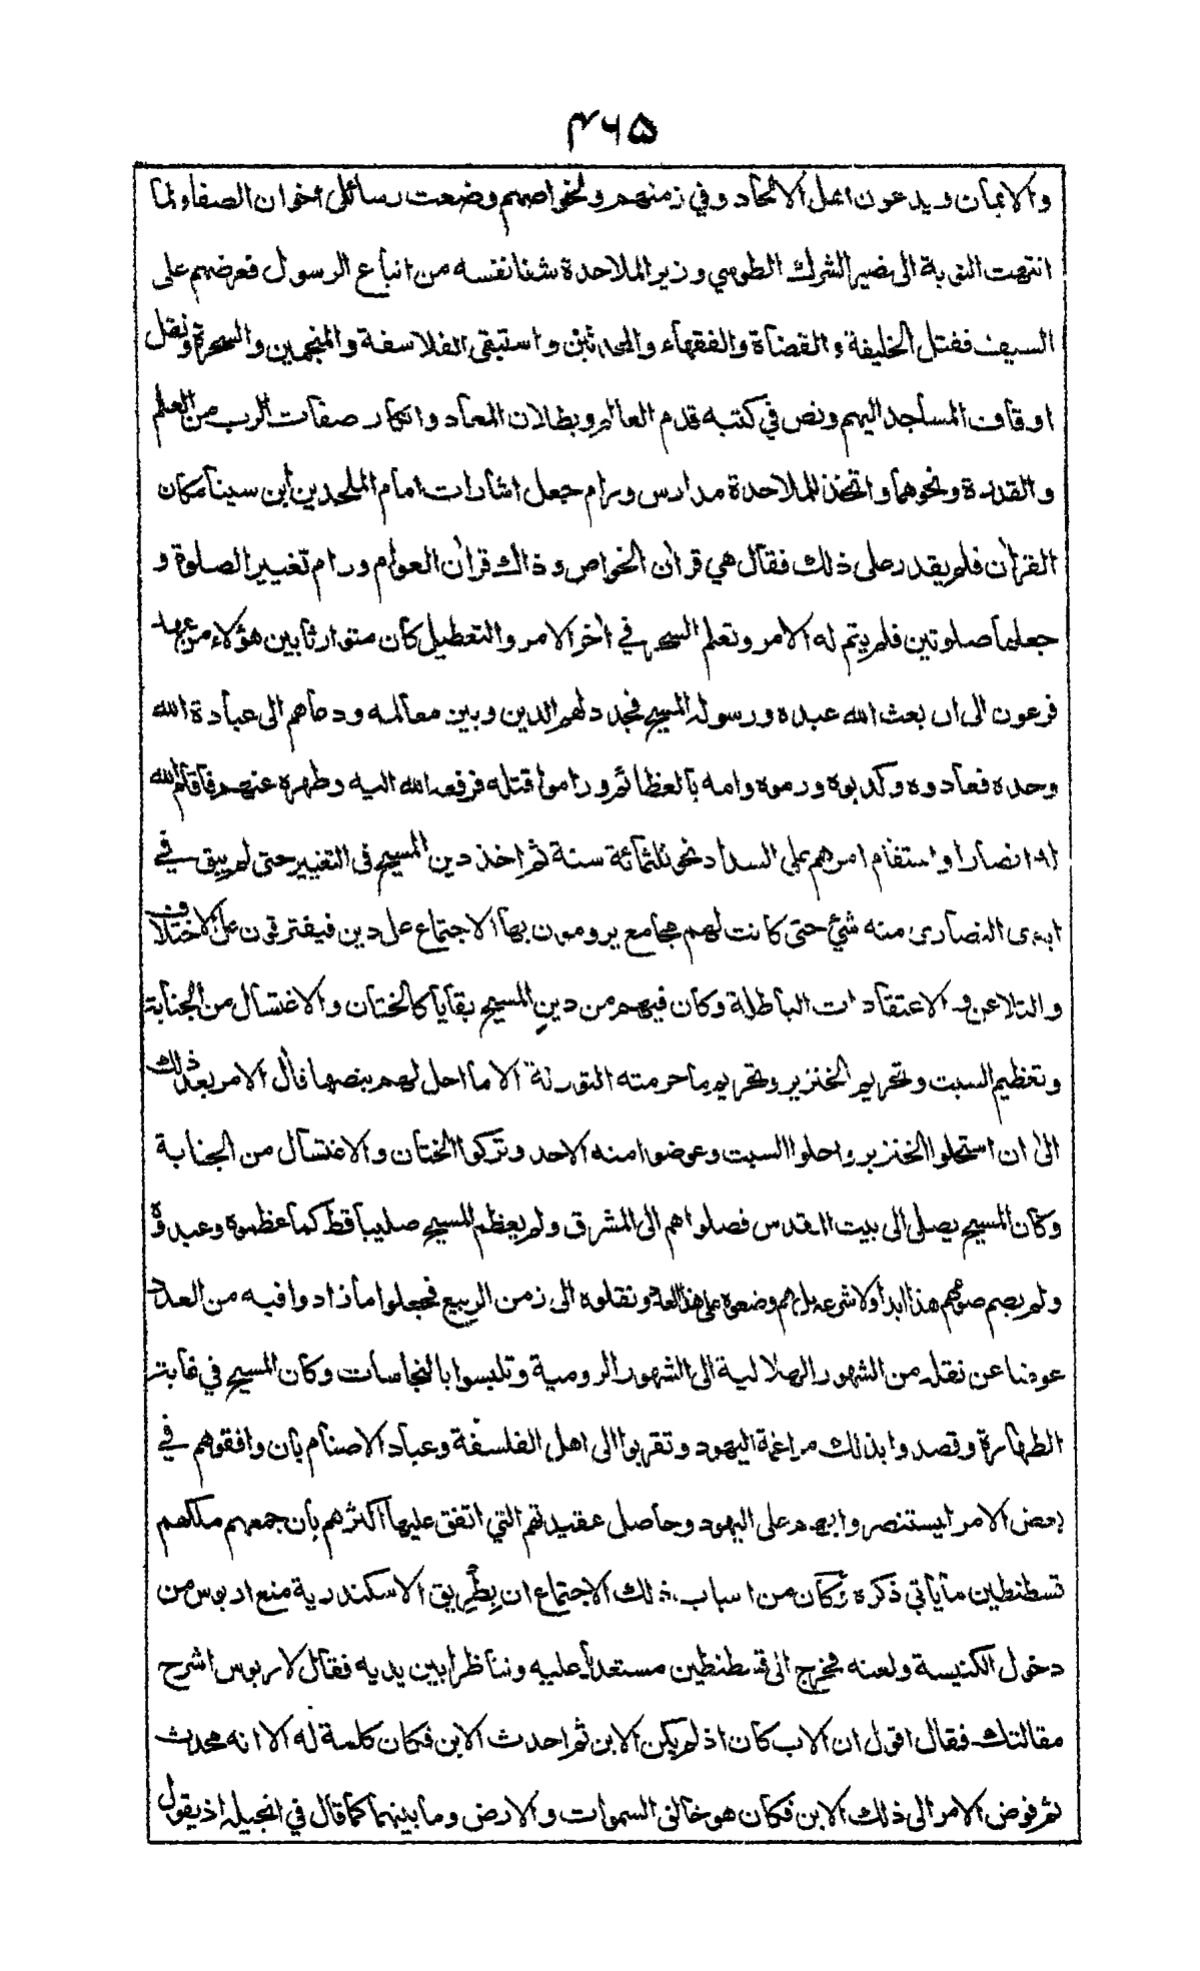 ۴۶۵
والايمان ويدعون اهل الالحاد وفي زمنهم ولخواصهم وضعت رسائل اخوان الصفا ولما
انتهت النوبة الى نصير الشرك الطوسي وزير الملاحدة شفا نفسه من اتباع الرسول فعرضهم على
السيف فقتل الخليفة والقضاة والفقهاء والمحدثين واستبقى الفلاسفة والمنجمين والسحرة ونقل
اوقاف المساجد اليهم ونص في كتبه قدم العالم وبطلان المعاد وانكار صفات الرب من العلم
والقدرة ونحوهما واتخذ للملاحدة مدارس ورام جعل اشارات امام الملحدين ابن سينا مكان
القرآن فلم يقدر على ذلك فقال هي قران الخواص وذاك قران العوام ورام تغيير الصلوة و
جعلها صلوتين فلم يتم له الامر وتعلم السحر في اخر الامر والتعطيل كان متوارثا بين هؤلاء من عهد
فرعون الى ان بعث الله عبده ورسوله المسيح فجدد لهم الدين وبين معالمه ودعاهم الى عبادة الله
وحده فعادوه وكذبوه ورموه وامه بالعظائم وراموا قتله فرفعه الله اليه وطهره عنهم فاقام الله
له انصارا واستقام امرهم على السداد نحو ثلثمائة سنة ثم اخذ دين المسيح في التغيير حتى لم يبق في
ايدى النصارى منه شئ حتى كانت لهم مجامع يرومون بها الاجتماع على دين فيفترقون على الاختلاف
والتلاعن والاعتقادات الباطلة وكان فيهم من دين المسيح بقايا كالختان والاغتسال من الجنابة
وتعظيم السبت وتحريم الخنزير وتحريم ما حرمته التورٰة الا ما احل لهم بنصها فآل الامر بعد ذلك
الى ان استحلوا الخنزير واحلوا السبت وعوضوا منه الاحد وتركوا الختان والاغتسال من الجنابة
وكان المسيح يصلي الى بيت المقدس فصلوا هم الى المشرق ولم يعظم المسيح صليبا قط كما عظموه وعبدوه
ولم يصم صومهم هذا ابدا ولا شرعه بل هم وضعوه على هذا العدد ونقلوه الى زمن الربيع فجعلوا ما زادوا فيه من العدد
عوضا عن نقله من الشهور الهلالية الى الشهور الرومية وتلبسوا بالنجاسات وكان المسيح في غاية
الطهارة وقصدوا بذلك مراغمة اليهود وتقربوا الى اهل الفلسفة وعباد الاصنام بان وافقوهم في
بعض الامر ليستنصروا بهم على اليهود وحاصل عقيدتهم التي اتفق عليها اكثرهم بان جمعهم ملكهم
قسطنطين ما يأتي ذكره وكان من اسباب ذلك الاجتماع ان بطريق الاسكندرية منع اريوس من
دخول الكنيسة ولعنه فخرج الى قسطنطين مستعديا عليه وتناظرا بين يديه فقال لاريوس اشرح
مقالتك فقال اقول ان الاب كان اذ لم يكن الابن ثم احدث الابن فكان كلمة له الا انه محدث
ثم فوض الامر الى ذلك الابن فكان هو خالق السموات والارض وما بينهما كما قال في انجيله اذ يقول